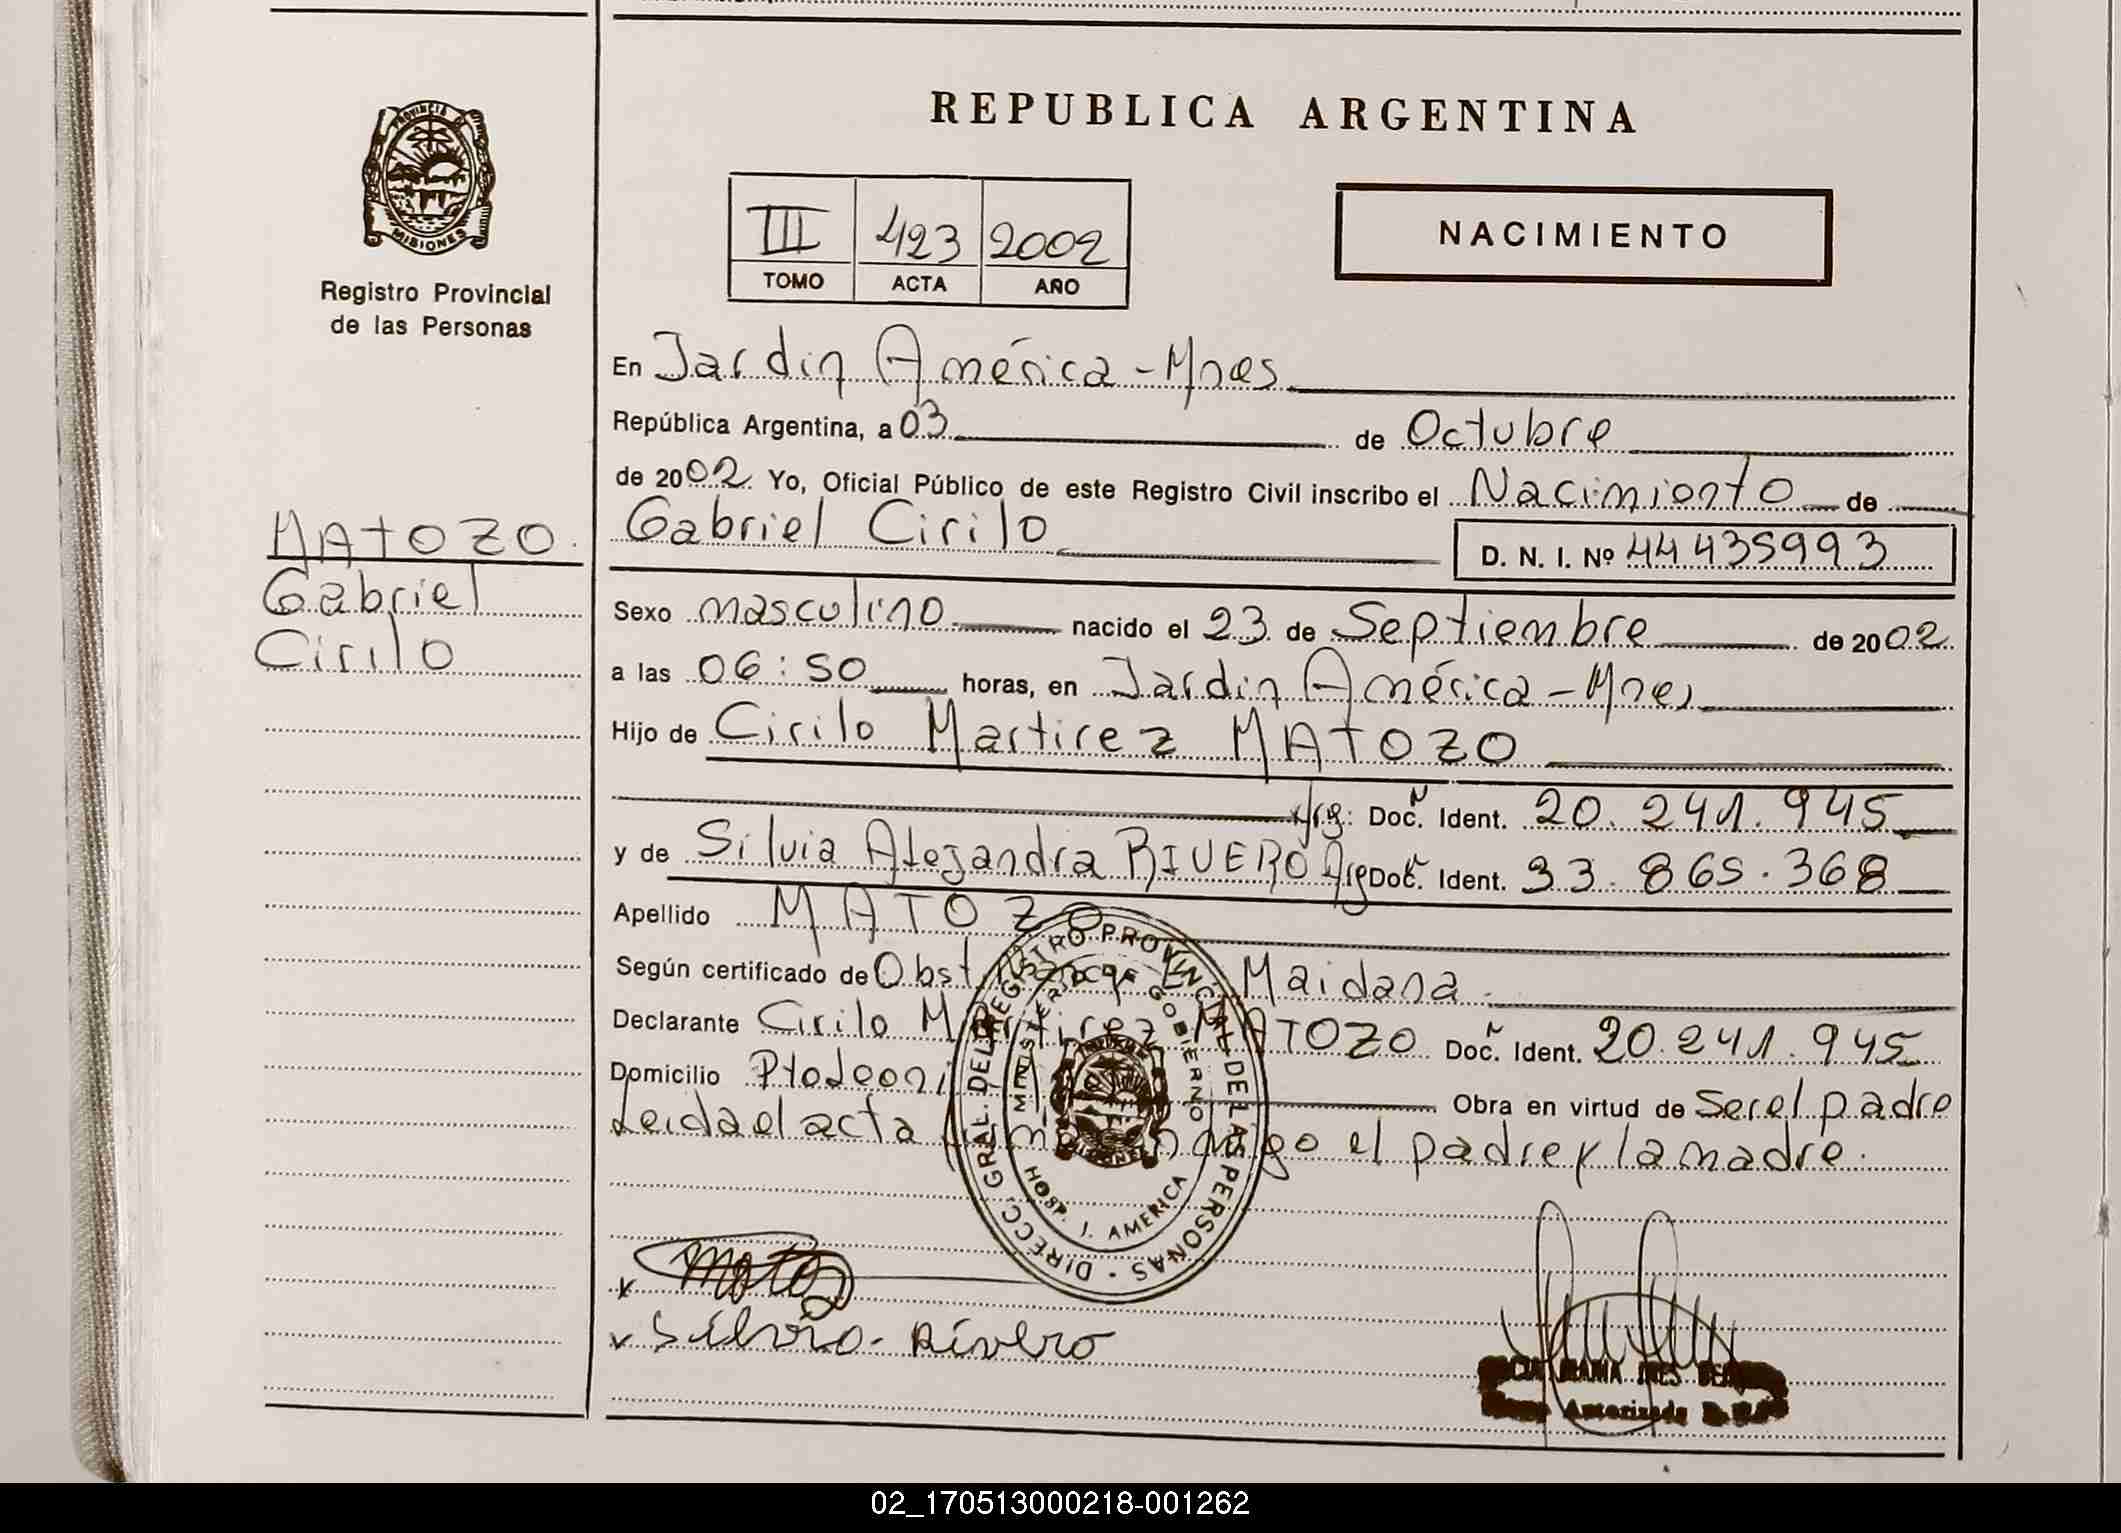 REPUBLICA ARGENTINA
PROVINCIA DE
MISIONES
Registro Provincial
de las Personas
III 423 2002
TOMO ACTA AÑO
NACIMIENTO
En Jardin América - Mnes
República Argentina, a 03 de Octubre
de 2002. Yo, Oficial Público de este Registro Civil inscribo el Nacimiento de
MATOZO.
Gabriel
Cirilo
Gabriel Cirilo
D. N. I. Nº 44435993
Sexo masculino nacido el 23 de Septiembre de 2002
a las 06:50 horas, en Jardin América - Mnes
Hijo de Cirilo Martirez MATOZO
Arg: Doc. Ident. 20.241.945
y de Silvia Alejandra RIVERO Arg Doc. Ident. 33.865.368
Apellido MATOZO
Según certificado de Maidana
Declarante Cirilo Martirez MATOZO Doc. Ident. 20.241.945
Domicilio Pto Leoni Obra en virtud de Ser el padre
Leida el acta el padre y la madre.
DIRECC. GRAL. DEL REGISTRO PROVINCIAL DE LAS PERSONAS
MINISTERIO DE GOBIERNO
HOSP. J. AMERICA
x
x Silvia - Rivero
MARIA INES
Autorizada
02_170513000218-001262